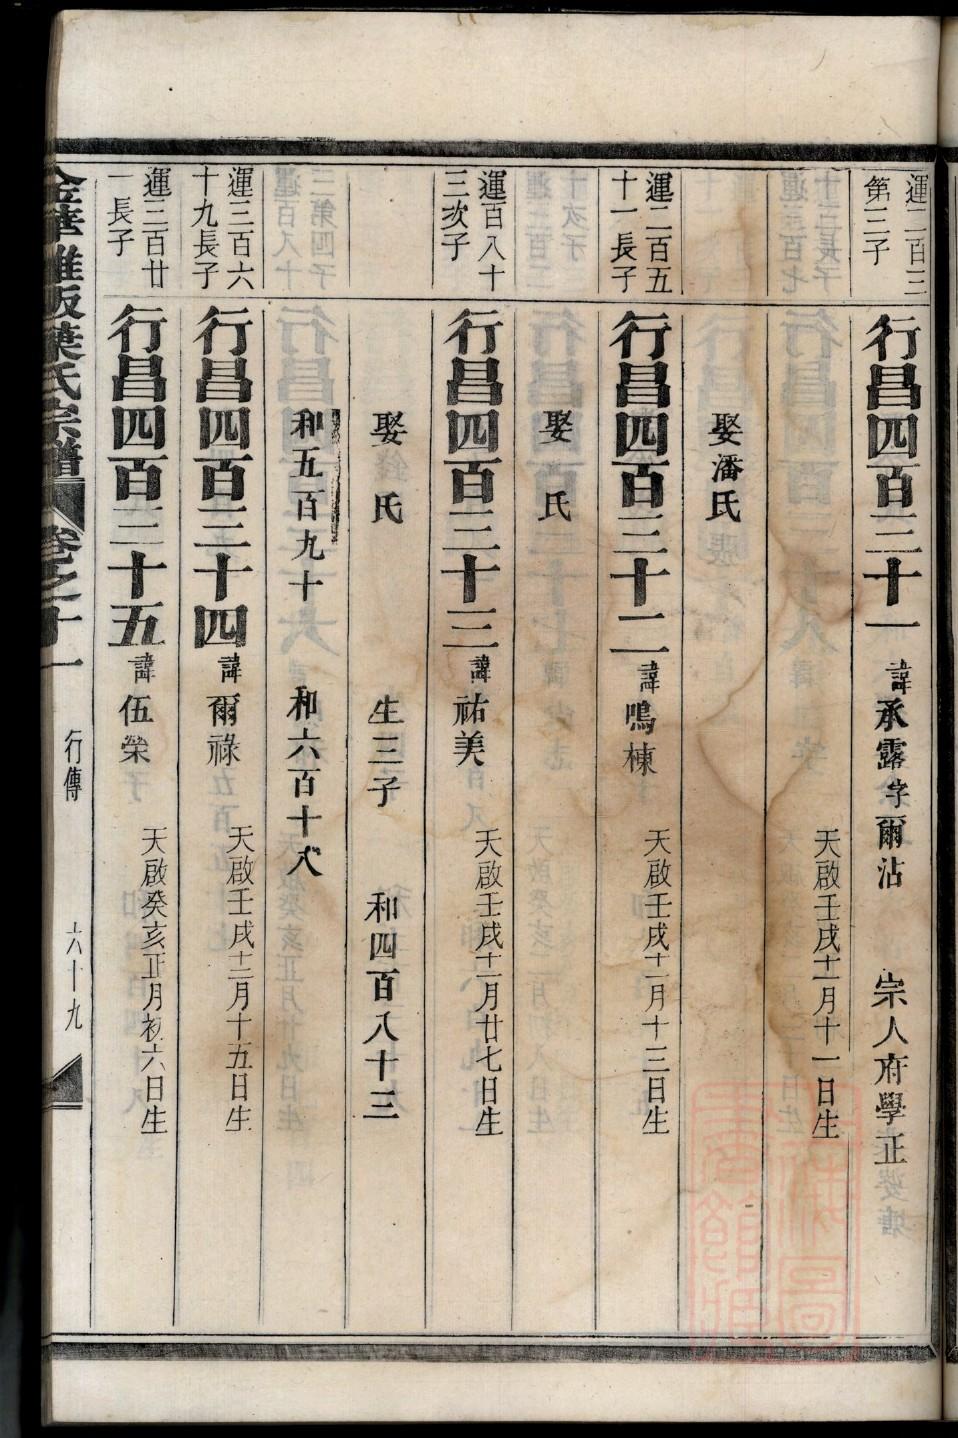 運二百三
第三子
行昌四百三十一 諱承露字爾沾 宗人府學正
天啟壬戌十二月十一日生
娶潘氏
運二百五
十一長子
行昌四百三十二 諱鳴棟
天啟壬戌十二月十三日生
娶 氏
運百八十
三次子
行昌四百三十三 諱祐美
天啟壬戌十二月廿七日生
娶 氏 生三子 和四百八十三
和五百九十 和六百十八
運三百六
十九長子
行昌四百三十四 諱爾祿
天啟壬戌十二月十五日生
運三百廿
一長子
行昌四百三十五 諱伍榮
天啟癸亥正月初六日生
金華 葉氏宗譜 卷之十一 行傳 六十九